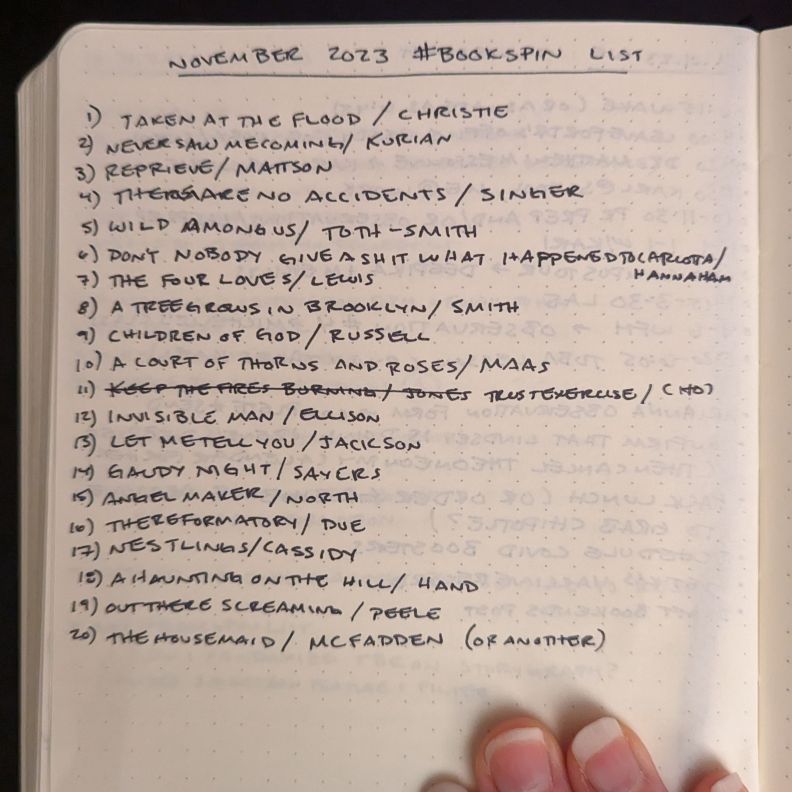 NOVEMBER 2023 #BOOKSPIN LIST
1) TAKEN AT THE FLOOD / CHRISTIE
2) NEVER SAW ME COMING / KURIAN
3) REPRIEVE / MATTSON
4) THERE ARE NO ACCIDENTS / SINGER
5) WILD AMONG US / TOTH-SMITH
6) DON'T NOBODY GIVE A SHIT WHAT HAPPENED TO CARLOTTA /
HANNAHAM
7) THE FOUR LOVES / LEWIS
8) A TREE GROWS IN BROOKLYN / SMITH
9) CHILDREN OF GOD / RUSSELL
10) A COURT OF THORNS AND ROSES / MAAS
11) KEEP THE FIRES BURNING / JONES TRUST EXERCISE / CHOI
12) INVISIBLE MAN / ELLISON
13) LET ME TELL YOU / JACKSON
14) GAUDY NIGHT / SAYERS
15) ANGEL MAKER / NORTH
16) THE REFORMATORY / DUE
17) NESTLINGS / CASSIDY
18) A HAUNTING ON THE HILL / HAND
19) OUT THERE SCREAMING / PEELE
20) THE HOUSEMAID / MCFADDEN (OR ANOTHER)